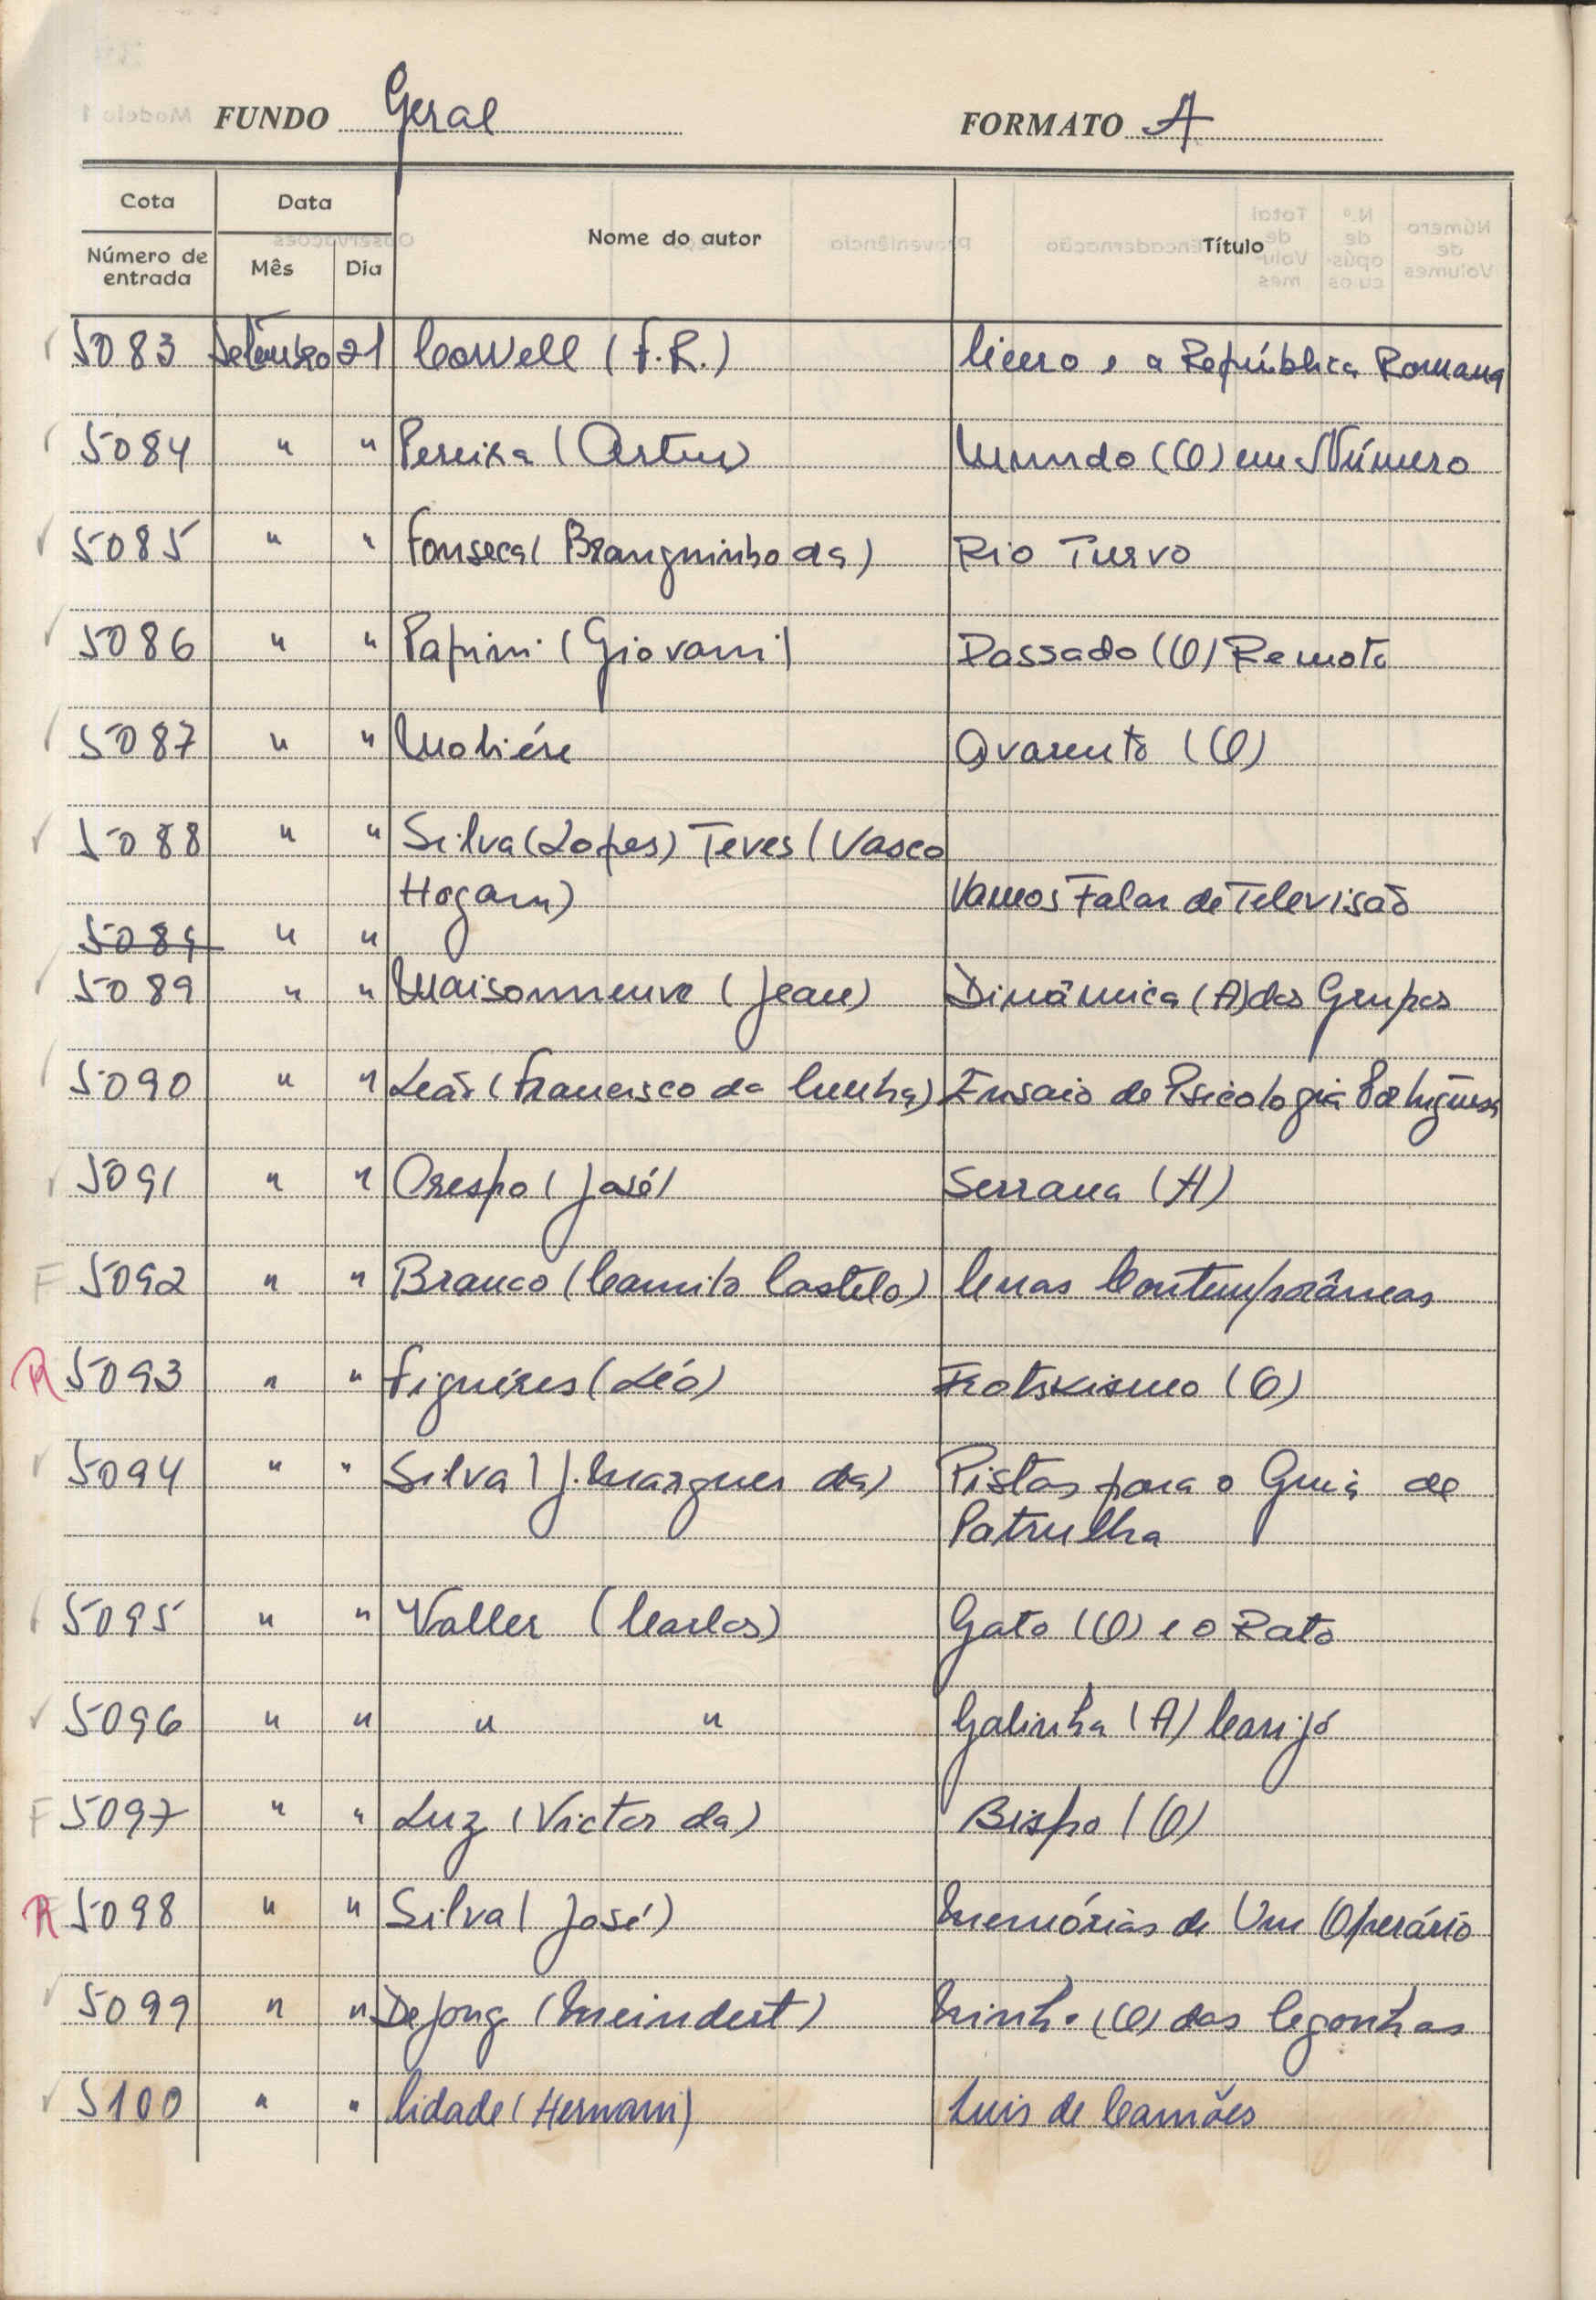 FUNDO Geral FORMATO A
Cota Data Nome do autor Título
Número de entrada Mês Dia
5083 Setembro 21 Cowell (F.R.) Cicero e a República Romana
5084 " " Pereira (Artur) Mundo (O) em Número
5085 " " Fonseca (Branquinho da) Rio Turvo
5086 " " Papini (Giovani) Passado (O) Remoto
5087 " " Moliére Avarento (O)
5088 " " Silva (Lopes) Teves (Vasco
Hogan) Vamos Falar de Televisão
5089 " "
5089 " " Maisonneuve (Jean) Dinâmica (A) dos Grupos
5090 " " Leão (Francisco da Cunha) Ensaio de Psicologia Portuguesa
5091 " " Crespo (José) Serrana (A)
F 5092 " " Branco (Camilo Castelo) Cenas Contemporâneas
R 5093 " " Figuéres (Léo) Trotskismo (O)
5094 " " Silva (J. Marques da) Pistas para o Guia de
Patrulha
5095 " " Valler (Carlos) Gato (O) e o Rato
5096 " " " " Galinha (A) Carijó
F 5097 " " Luz (Victor da) Bispo (O)
R 5098 " " Silva (José) Memórias de Um Operário
5099 " " DeJong (Meindert) Ninho (O) das Cegonhas
5100 " " Cidade (Hernani) Luis de Camões